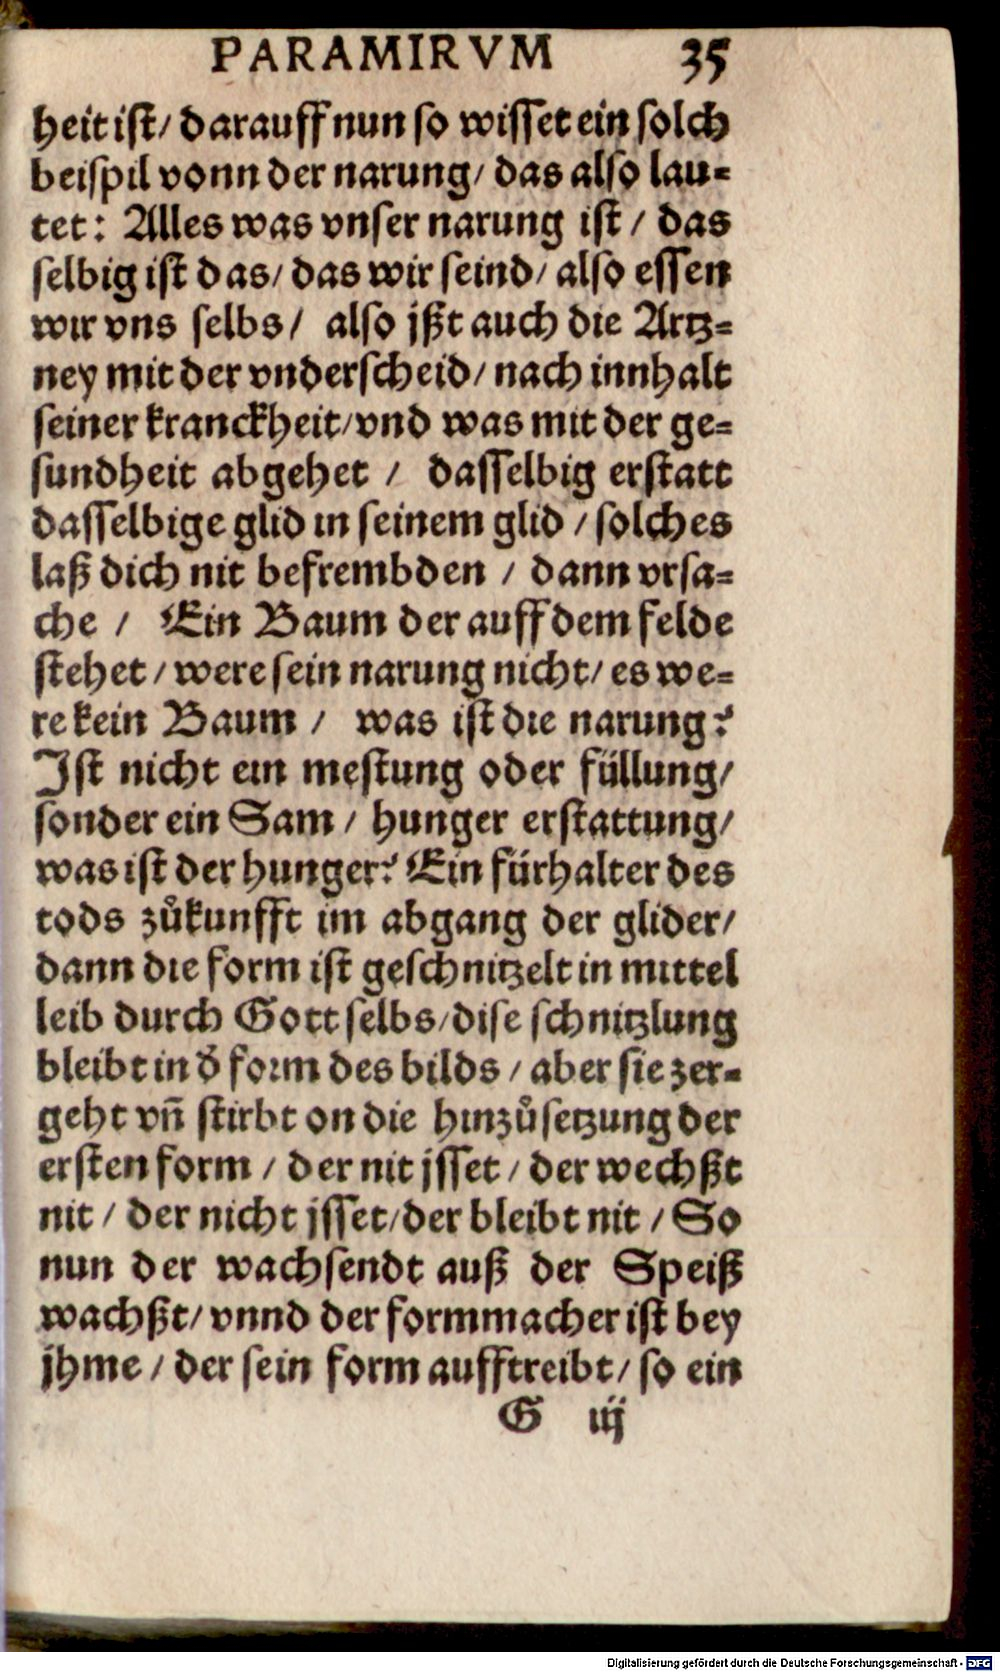 PARAMIRVM 35
heit ist / darauff nun so wisset ein solch
beispil vonn der narung / das also lau⸗
tet: Alles was vnser narung ist / das
selbig ist das / das wir seind / also essen
wir vns selbs / also jßt auch die Artz⸗
ney mit der vnderscheid / nach innhalt
seiner kranckheit / vnd was mit der ge⸗
sundheit abgehet / dasselbig erstatt
dasselbige glid in seinem glid / solches
laß dich nit befrembden / dann vrsa⸗
che / Ein Baum der auff dem felde
stehet / were sein narung nicht / es we⸗
re kein Baum / was ist die narung?
Ist nicht ein mestung oder füllung /
sonder ein Sam / hunger erstattung /
was ist der hunger? Ein fürhalter des
tods zůkunfft im abgang der glider /
dann die form ist geschnitzelt in mittel
leib durch Gott selbs / dise schnitzlung
bleibt in d̕ form des bilds / aber sie zer⸗
geht vñ stirbt on die hinzůsetzung der
ersten form / der nit jsset / der wechßt
nit / der nicht jsset / der bleibt nit / So
nun der wachsendt auß der Speiß
wachßt / vnnd der formmacher ist bey
jhme / der sein form aufftreibt / so ein
G iij
Digitalisierung gefördert durch die Deutsche Forschungsgemeinschaft - DFG